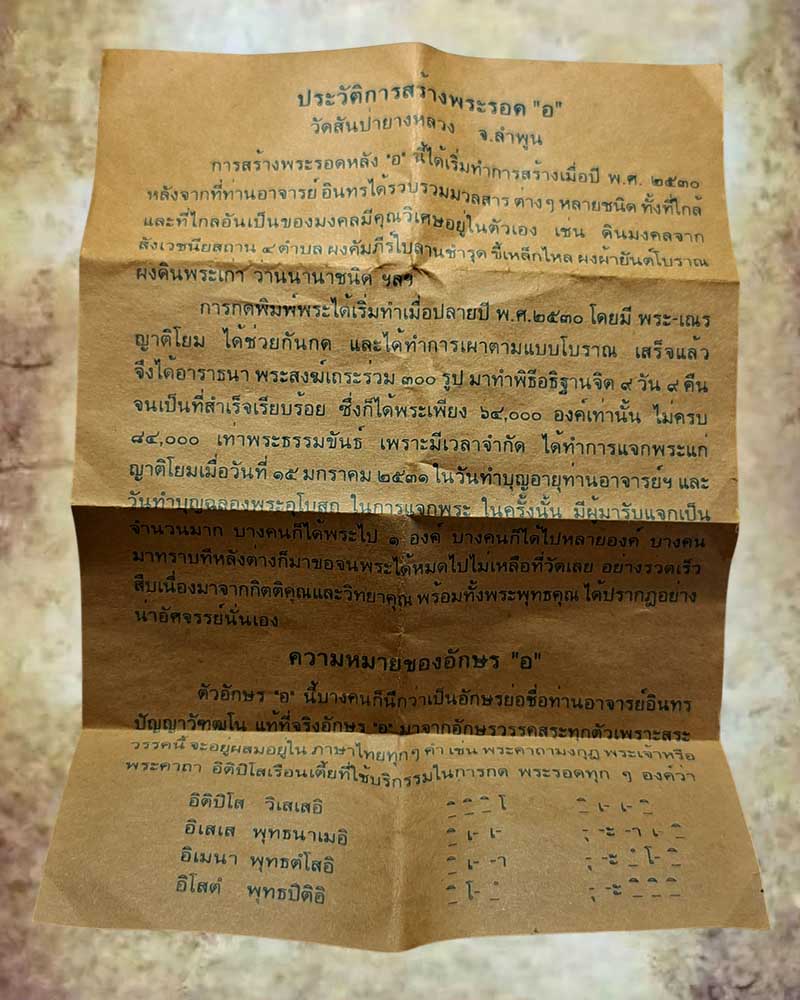 ประวัติการสร้างพระรอด "อ"
วัดสันป่ายางหลวง จ.ลำพูน
การสร้างพระรอดหลัง "อ" นี้ได้เริ่มทำการสร้างเมื่อปี พ.ศ. ๒๕๓๐
หลังจากที่ท่านอาจารย์ อินทรได้รวบรวมมวลสาร ต่างๆ หลายชนิด ทั้งที่ใกล้
และที่ไกลอันเป็นของมงคลมีคุณวิเศษอยู่ในตัวเอง เช่น ดินมงคลจาก
สังเวชนียสถาน ๔ ตำบล ผงคัมภีร์ใบลานชำรุด ขี้เหล็กไหล ผงผ้ายันต์โบราณ
ผงดินพระเก่า ว่านนานาชนิด ฯลฯ
การกดพิมพ์พระได้เริ่มทำเมื่อปลายปี พ.ศ.๒๕๓๐ โดยมี พระ-เณร
ญาติโยม ได้ช่วยกันกด และได้ทำการเผาตามแบบโบราณ เสร็จแล้ว
จึงได้อาราธนา พระสงฆ์เถระร่วม ๓๐๐ รูป มาทำพิธีอธิฐานจิต ๙ วัน ๙ คืน
จนเป็นที่สำเร็จเรียบร้อย ซึ่งก็ได้พระเพียง ๖๔,๐๐๐ องค์เท่านั้น ไม่ครบ
๘๔,๐๐๐ เท่าพระธรรมขันธ์ เพราะมีเวลาจำกัด ได้ทำการแจกพระแก่
ญาติโยมเมื่อวันที่ ๑๕ มกราคม ๒๕๓๑ ในวันทำบุญอายุท่านอาจารย์ฯ และ
วันทำบุญฉลองพระอุโบสถ ในการแจกพระ ในครั้งนั้น มีผู้มารับแจกเป็น
จำนวนมาก บางคนก็ได้พระไป ๑ องค์ บางคนก็ได้ไปหลายองค์ บางคน
มาทราบทีหลังต่างก็มาขอจนพระได้หมดไปไม่เหลือที่วัดเลย อย่างรวดเร็ว
สืบเนื่องมาจากกิตติคุณและวิทยาคุณ พร้อมทั้งพระพุทธคุณ ได้ปรากฎอย่าง
น่าอัศจรรย์นั่นเอง
ความหมายของอักษร "อ"
ตัวอักษร "อ" นี้บางคนก็นึกว่าเป็นอักษรย่อชื่อท่านอาจารย์อินทร
ปัญญาวัฑฒโน แท้ที่จริงอักษร "อ" มาจากอักษรวรรคสระทุกตัวเพราะสระ
วรรคนี้ จะอยู่ผสมอยู่ใน ภาษาไทยทุกๆ คำ เช่น พระคาถามงกุฎ พระเจ้าหรือ
พระคาถา อิติปิโสเรือนเตี้ยที่ใช้บริกรรมในการกด พระรอดทุก ๆ องค์ว่า
อิติปิโส วิเสเสอิ
อิเสเส พุทธนาเมอิ
อิเมนา พุทธตํโสอิ
อิโสตํ พุทธปิติอิ